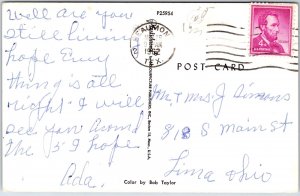 well are you
still living
hope Every
thing is all
right I will
see you Around
the 5 I hope
Ada.
P25954
BEAUMONT
TEX.
POST CARD
Mr & Mrs J Simons
818 S Main St
Lima Ohio
Color by Bob Taylor